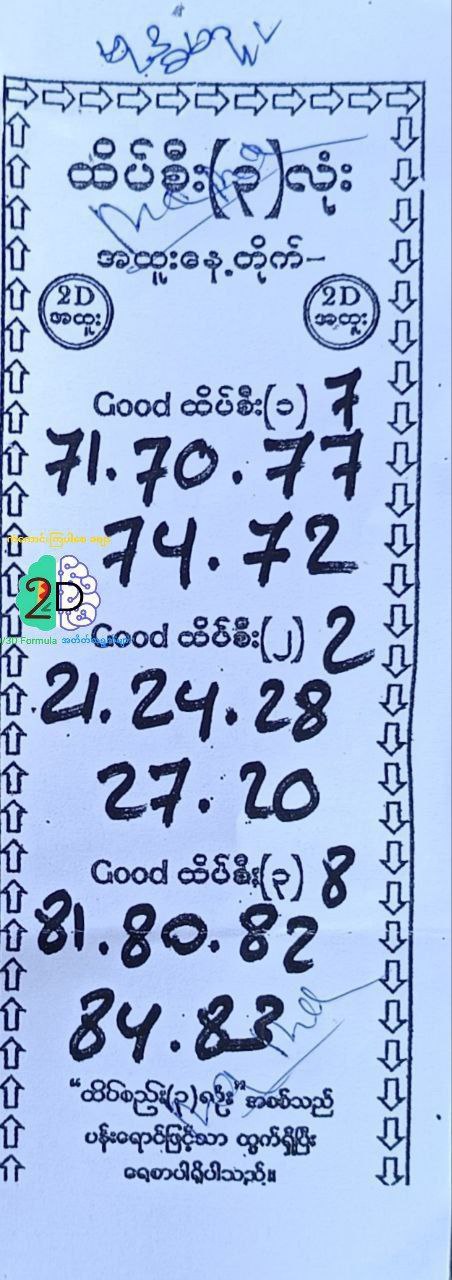 ထိပ်စီး(၃)လုံး
အထူးနေ့တိုက်-
2D
အထူး
2D
အထူး
Good ထိပ်စီး(၁) 7
71. 70. 77
74. 72
2D
Formula
Good ထိပ်စီး(၂) 2
21. 24. 28
27. 20
Good ထိပ်စီး(၃) 8
81. 80. 82
84. 83
"ထိပ်စည်း(၃)ရှဉ်း" အစစ်သည်
ပန်းရောင်ဖြင့်သာ ထွက်ရှိပြီး
ရေစာပါရှိပါသည်။